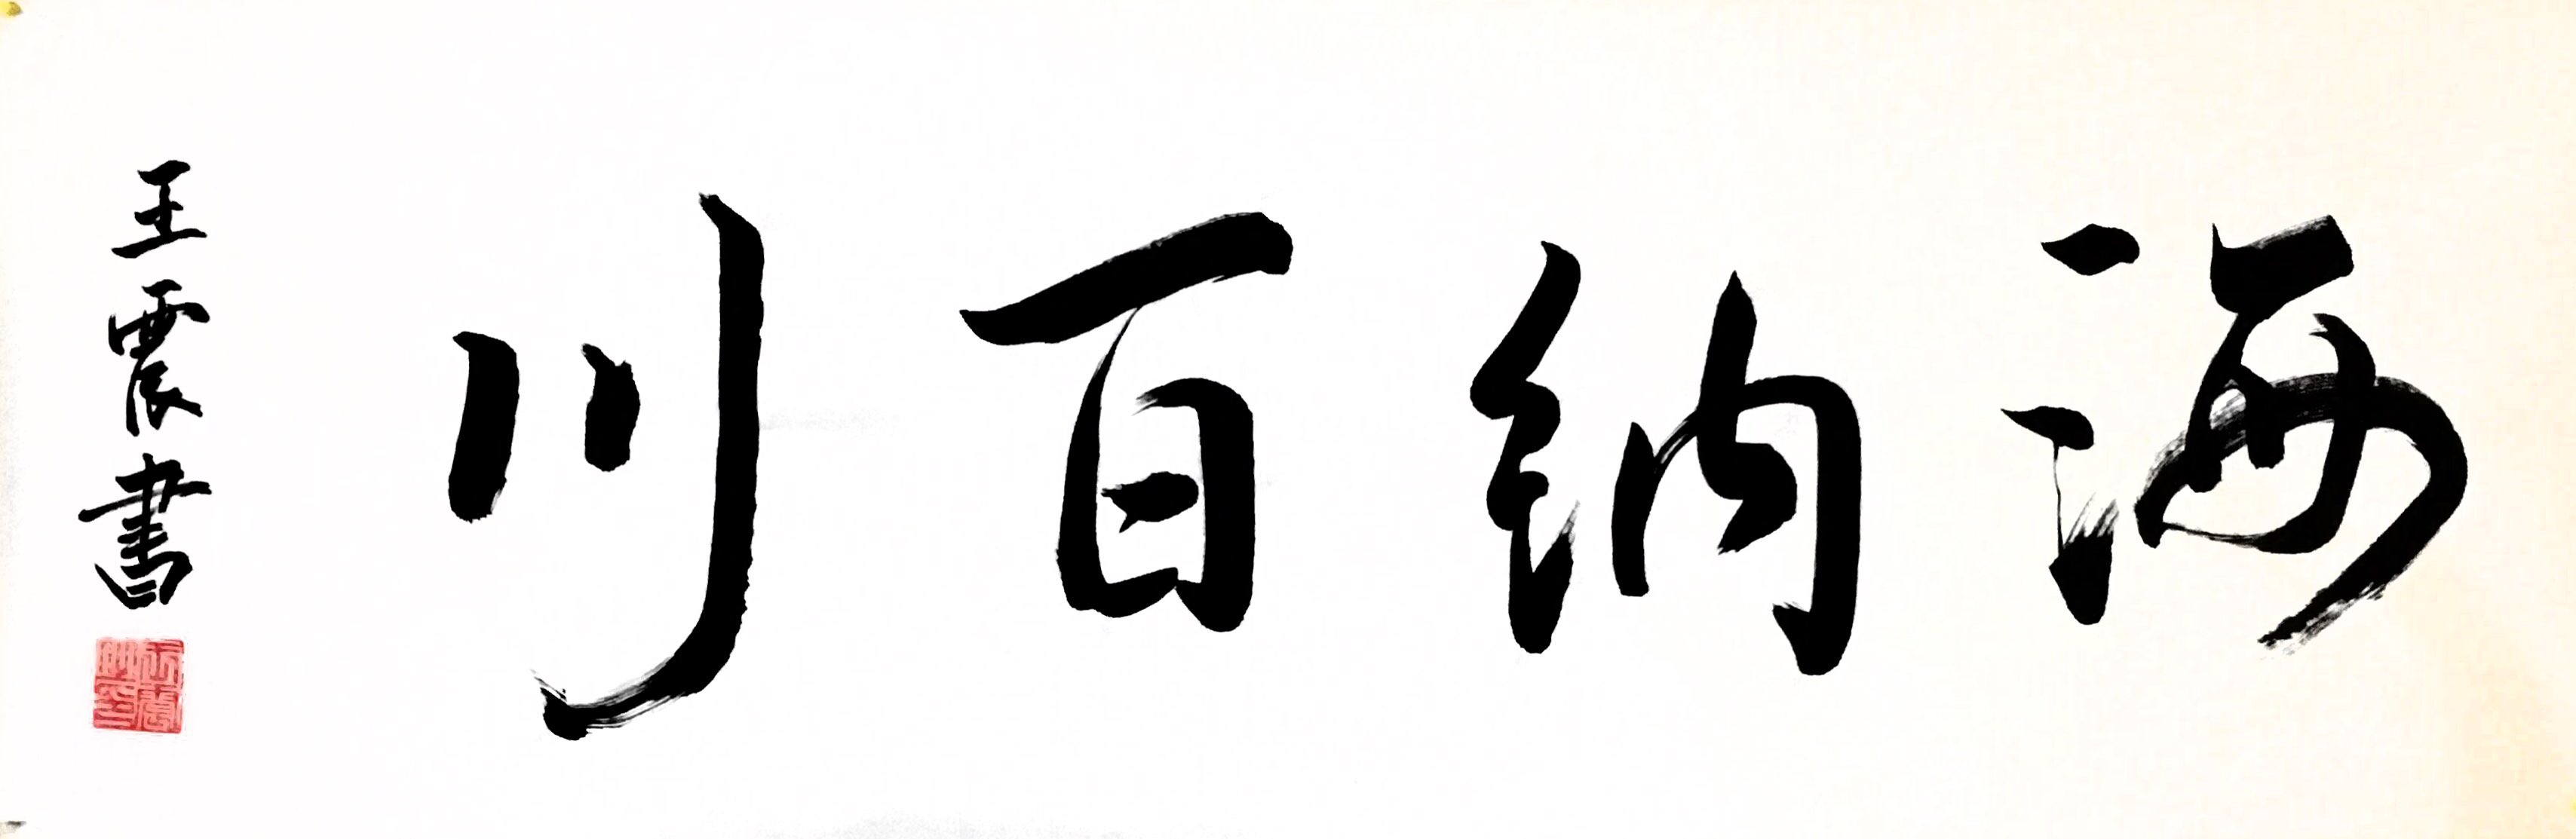 海納百川
王震書